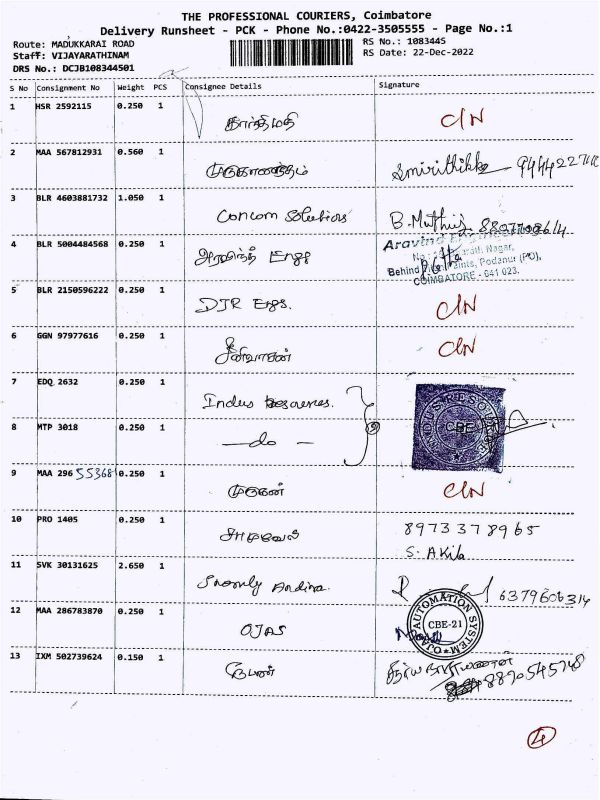 THE PROFESSIONAL COURIERS, Coimbatore
Delivery Runsheet - PCK - Phone No.:0422-3505555 - Page No.:1
Route: MADUKKARAI ROAD
RS No.: 1083445
Staff: VIJAYARATHINAM
RS Date: 22-Dec-2022
DRS No.: DCJB108344501
S No Consignment No Weight PCS Consignee Details Signature
1 HSR 2592115 0.250 1 கார்திமதி C/N
2 MAA 567812931 0.560 1 Smirithikka
3 BLR 4603881732 1.050 1 Concom Solutions B.
4 BLR 5004484568 0.250 1 அரவிந்த் Engg
Aravind
Nagar,
Behind Paints, Podanur (PO),
COIMBATORE - 641 023.
5 BLR 2150596222 0.250 1 DJR Engs. C/N
6 GGN 97977616 0.250 1 சீனிவாசன் C/N
7 EDQ 2632 0.250 1 Indus Resources.
INDUS RESOU
CBE
8 MTP 3018 0.250 1 — do — 2
9 MAA 296 55368 0.250 1 முருகன் C/N
10 PRO 1405 0.250 1 8973378965
S. Akila
11 SVK 30131625 2.650 1 6379606314
12 MAA 286783870 0.250 1 OJAS
OJAS AUTOMATION SYSTEM
CBE-21
13 IXM 502739624 0.150 1
8870545748
4